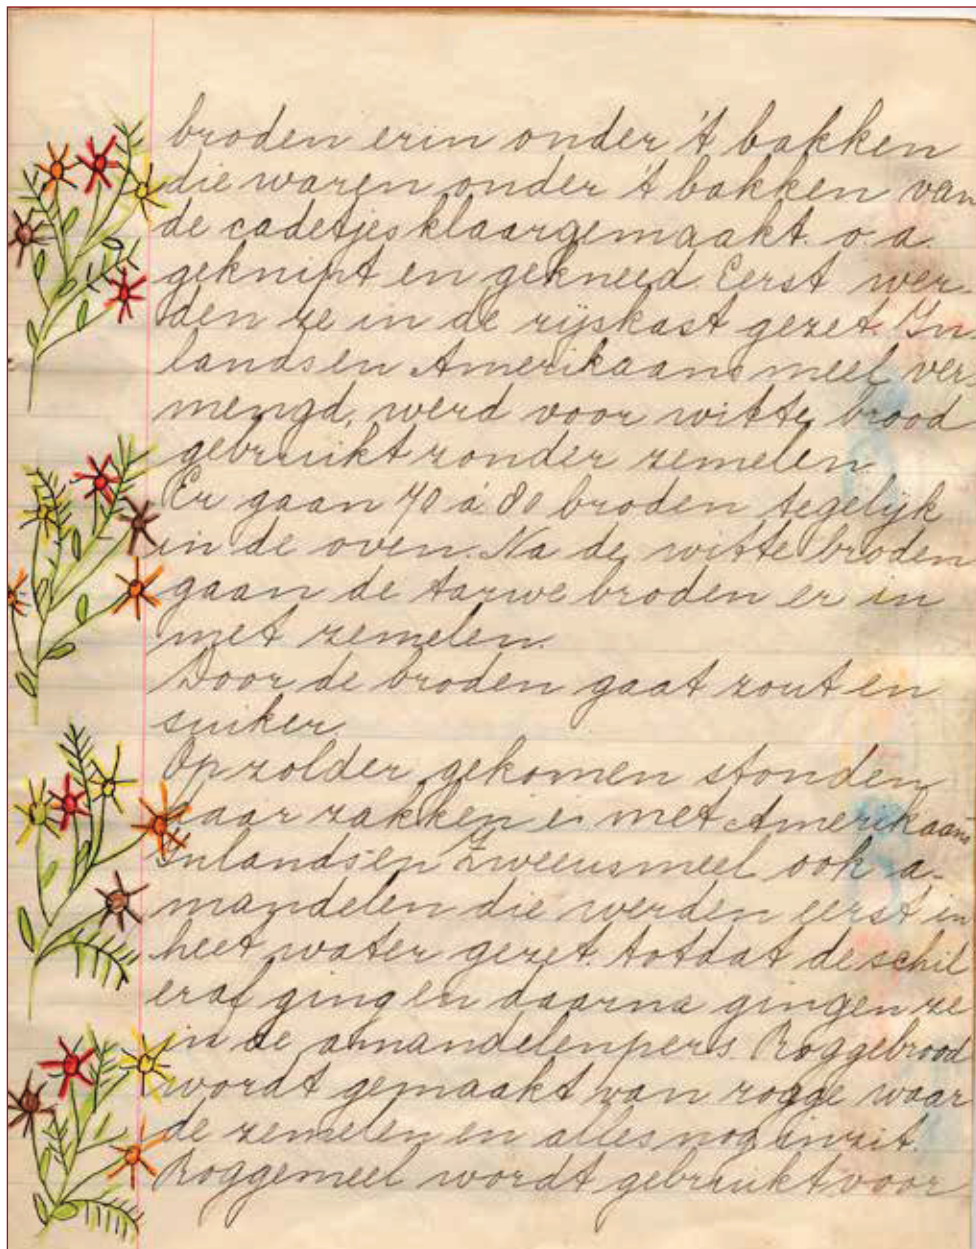 broden erin onder 't bakken
die waren onder 't bakken van
de cadetjes klaargemaakt. o.a.
geknipt en gekneed. Eerst wer-
den ze in de rijskast gezet. In-
lands en Amerikaans meel ver-
mengd, werd voor witte brood
gebruikt zonder zemelen
Er gaan 70 á 80 broden tegelijk
in de oven. Na de witte broden
gaan de tarwe broden er in
met zemelen.
Door de broden gaat zout en
suiker.
Op zolder gekomen stonden
daar zakken met Amerikaans
Inlands en Zweeusmeel ook a-
mandelen die werden eerst in
heet water gezet. totdat de schil
eraf ging en daarna gingen ze
in de amandelenpers. Roggebrood
wordt gemaakt van rogge waar
de zemelen en alles nog inzit.
Roggemeel wordt gebruikt voor